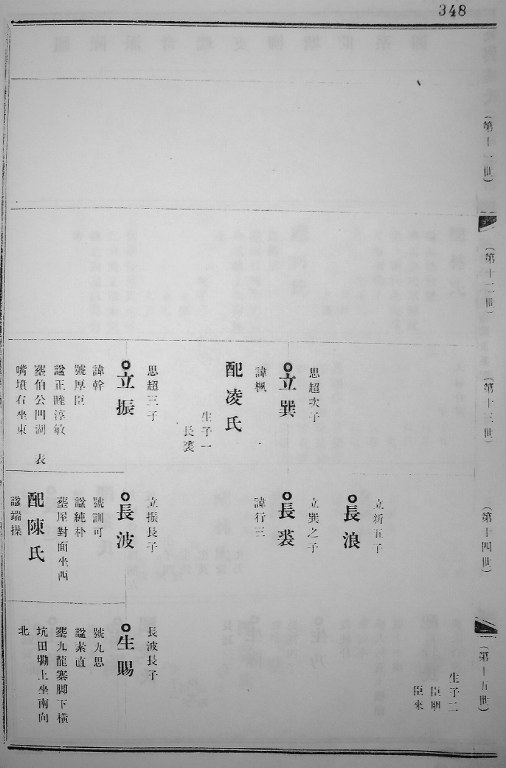 348
(第十一世)
(第十二世)
(第十三世)
思超次子
立巽
諱楓
配凌氏
生子一
長裘
思超三子
立振
諱幹
號厚臣
諡正睦淳敏
塟伯公凹湖 表
嘴墳右坐東
(第十四世)
立析五子
長浪
立巽之子
長裘
諱行三
立振長子
長波
號訓可
諡純朴
塟屋對面坐西
配陳氏
諡端操
(第十五世)
生子二
臣剛
臣來
長波長子
生賜
號九思
諡素直
塟九龍寨脚下橫
坑田墈上坐南向
北